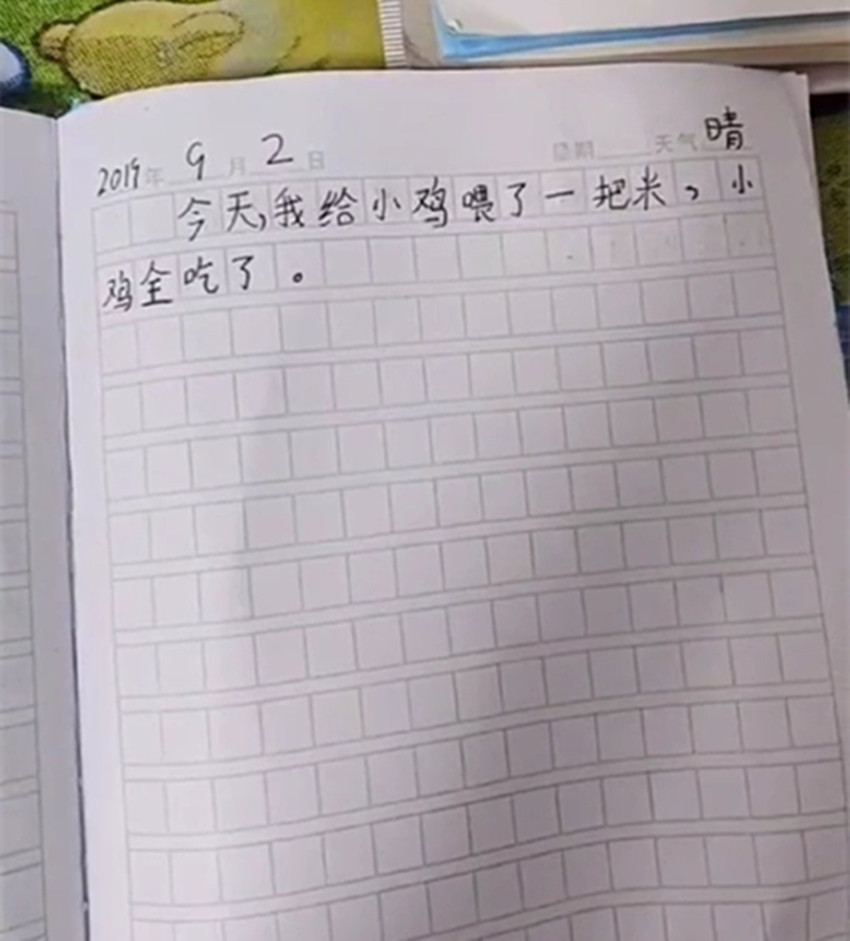 2019年 9月 2日 星期 天气 晴
今天,我给小鸡喂了一把米,小
鸡全吃了。